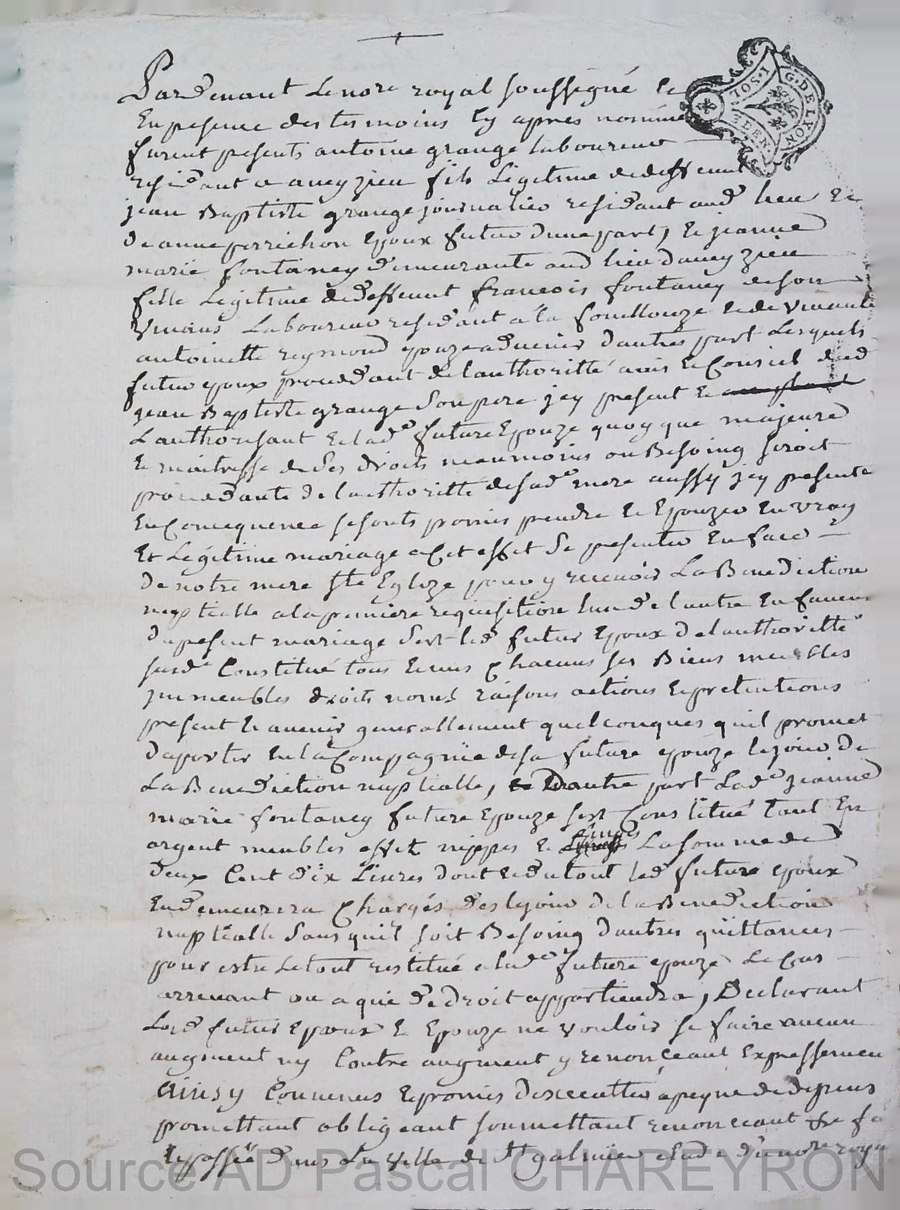 Pardevant Le nore royal soussigné Et
En presence des tesmoins Cy apres nommés
furent presents antoine grange laboureur
residant a aveyzieu fils Légitime de deffunt
jean Baptiste grange journalier residant aud lieu Et
De anne perrichon Epoux futur d'une part, Et jeanne
marie fontaney demeurante aud lieu d'aveyzieu
fille Légitime de deffunt francois fontaney de son
vivans Laboureur residant a la fouillouze Et de vivante
antoinette reymond Epouze advenir d'autre part Lesquels
futur Epoux procedant de l'authoritté avis Et Conseil dud
jean Baptiste grange son pere jcy present Et
L'authorisant Et lade future Epouze quoy que majeure
Et maitresse de ses droits neanmoins ou Besoing seroit
procedante de l'authoritté de sade mere aussy jcy presente
En Consequence se sont promis prendre Et Epouzer En vray
Et Légitime mariage a Cet effet se presenter En face
De notre mere Ste Eglize pour y recevoir La Benediction
nuptialle a la premiere requisition L'un de l'autre En faveur
du present mariage s'est led futur Epoux De l'authoritté
susde Constitué tous Et uns Chacuns ses Biens meubles
jmmeubles droits noms raisons actions Et pretentions
present Et avenir generallement quelconques qu'il promet
d'aporter En la Compagnie de sa future Epouze le jour De
La Benediction nuptialle, Et D'autre part Lade jeanne
marie fontaney future Epouze s'est Constitué tant En
argent meubles effet nippes Et Linges La somme de
Deux Cent dix Livres dont Et du tout led futur Epoux
En demeurera Chargés des le jour de la Benediction
nuptialle sans qu'il soit Besoing d'autres quittances
pour estre Le tout restitué a lade future Epouze Le Cas
arrivant ou a qui de Droit appartiendra, Declarant
Lesd futur Epoux Et Epouze ne vouloir se faire aucun
augment ny Contre augment y renonceant Expressement
ainsy Convenus Et promis d'executter a peyne de depens
promettant obligeant soumettant renonceant
fait Et passé dans La ville de St galmier Etude du nore royal
G. DE LYON
1. SOL
Source AD Pascal CHAREYRON